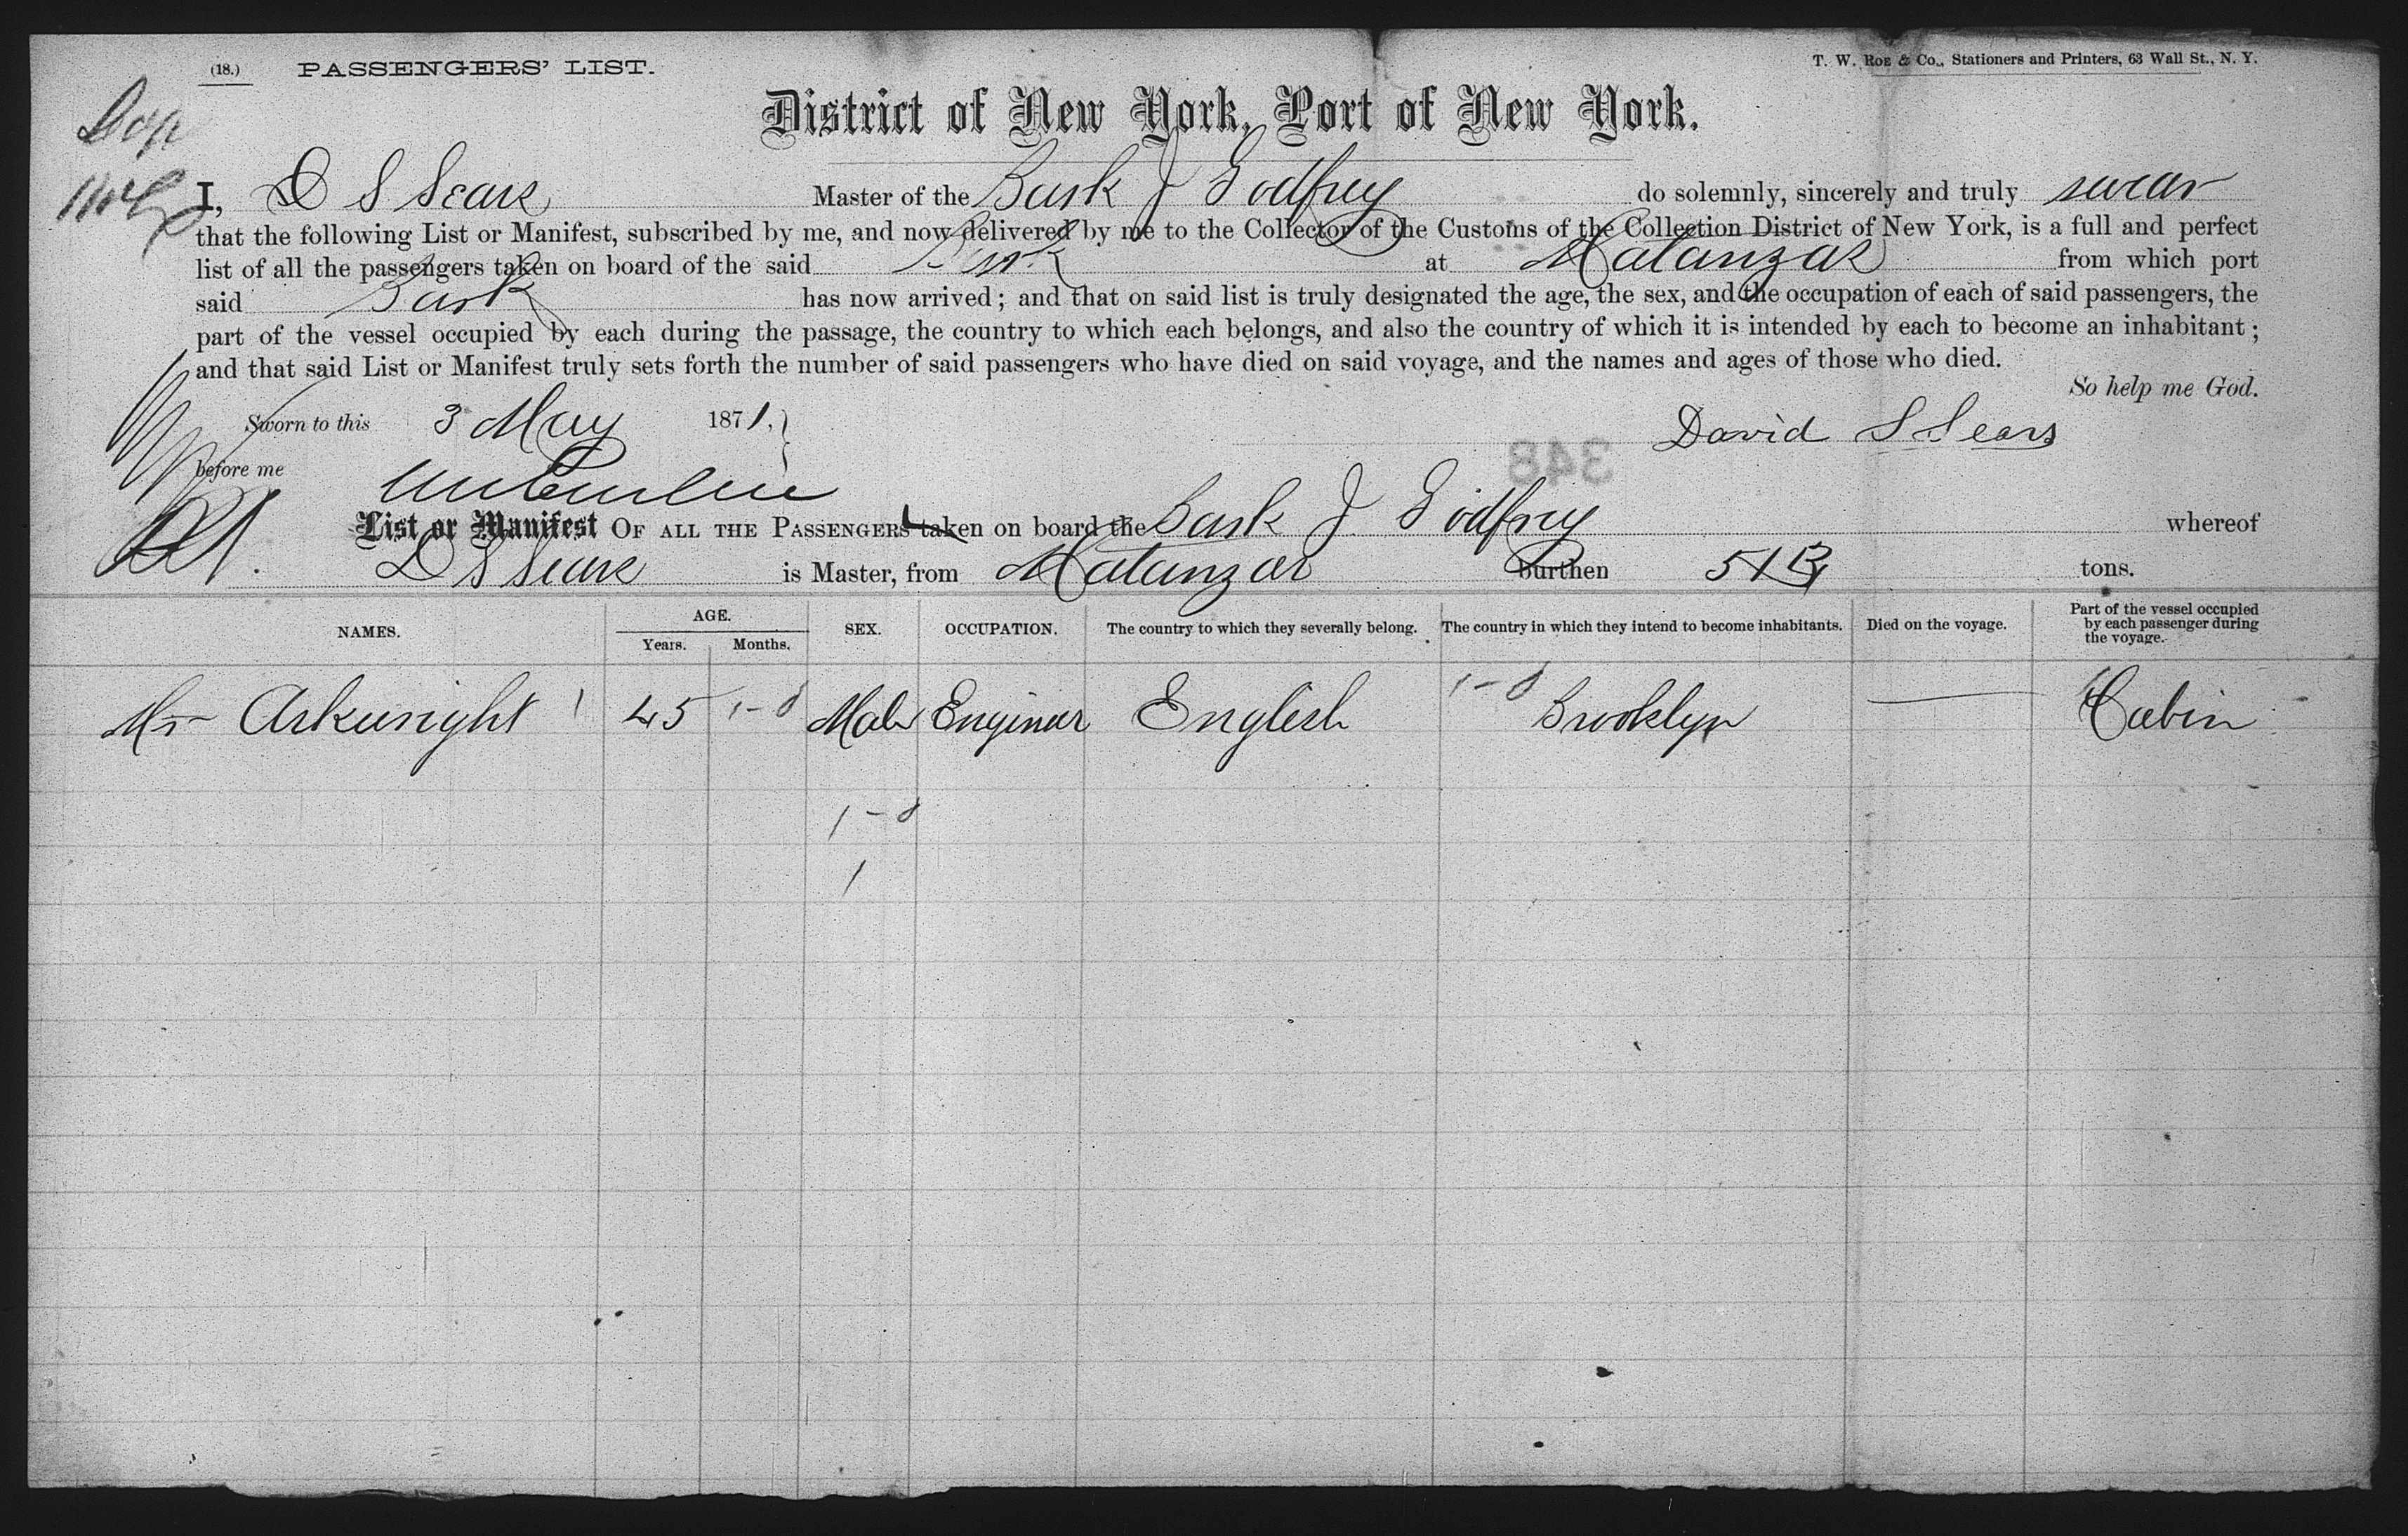 (18.) PASSENGERS' LIST. T. W. Roe & Co., Stationers and Printers, 63 Wall St., N. Y.
District of New York, Port of New York.
I, D S Sears Master of the Bark J Godfrey do solemnly, sincerely and truly swear
that the following List or Manifest, subscribed by me, and now delivered by me to the Collector of the Customs of the Collection District of New York, is a full and perfect
list of all the passengers taken on board of the said Bark at Matanzas from which port
said Bark has now arrived; and that on said list is truly designated the age, the sex, and the occupation of each of said passengers, the
part of the vessel occupied by each during the passage, the country to which each belongs, and also the country of which it is intended by each to become an inhabitant;
and that said List or Manifest truly sets forth the number of said passengers who have died on said voyage, and the names and ages of those who died.
So help me God.
Sworn to this 3 May 1871,
David S Sears
348
before me
List or Manifest OF ALL THE PASSENGERS taken on board the Bark J Godfrey whereof
D S Sears is Master, from Matanzas burthen tons.
NAMES. AGE. Years. Months. SEX. OCCUPATION. The country to which they severally belong. The country in which they intend to become inhabitants. Died on the voyage. Part of the vessel occupied by each passenger during the voyage.
Mr Arkwright 1 45 1-0 Male Engineer English 1-0 Brooklyn — Cabin
1-0
1